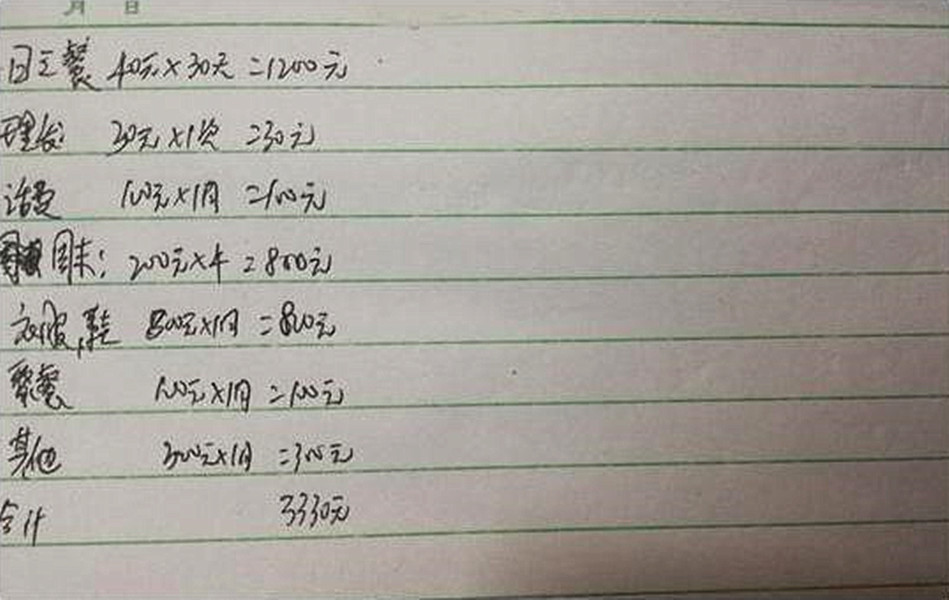 月 日
日三餐 40元×30天=1200元
理发 30元×1次=30元
话费 100元×1月=100元
周末: 200元×4=800元
衣服,鞋 800元×1月=800元
聚餐 100元×1月=100元
其他 300元×1月=300元
合计 3330元